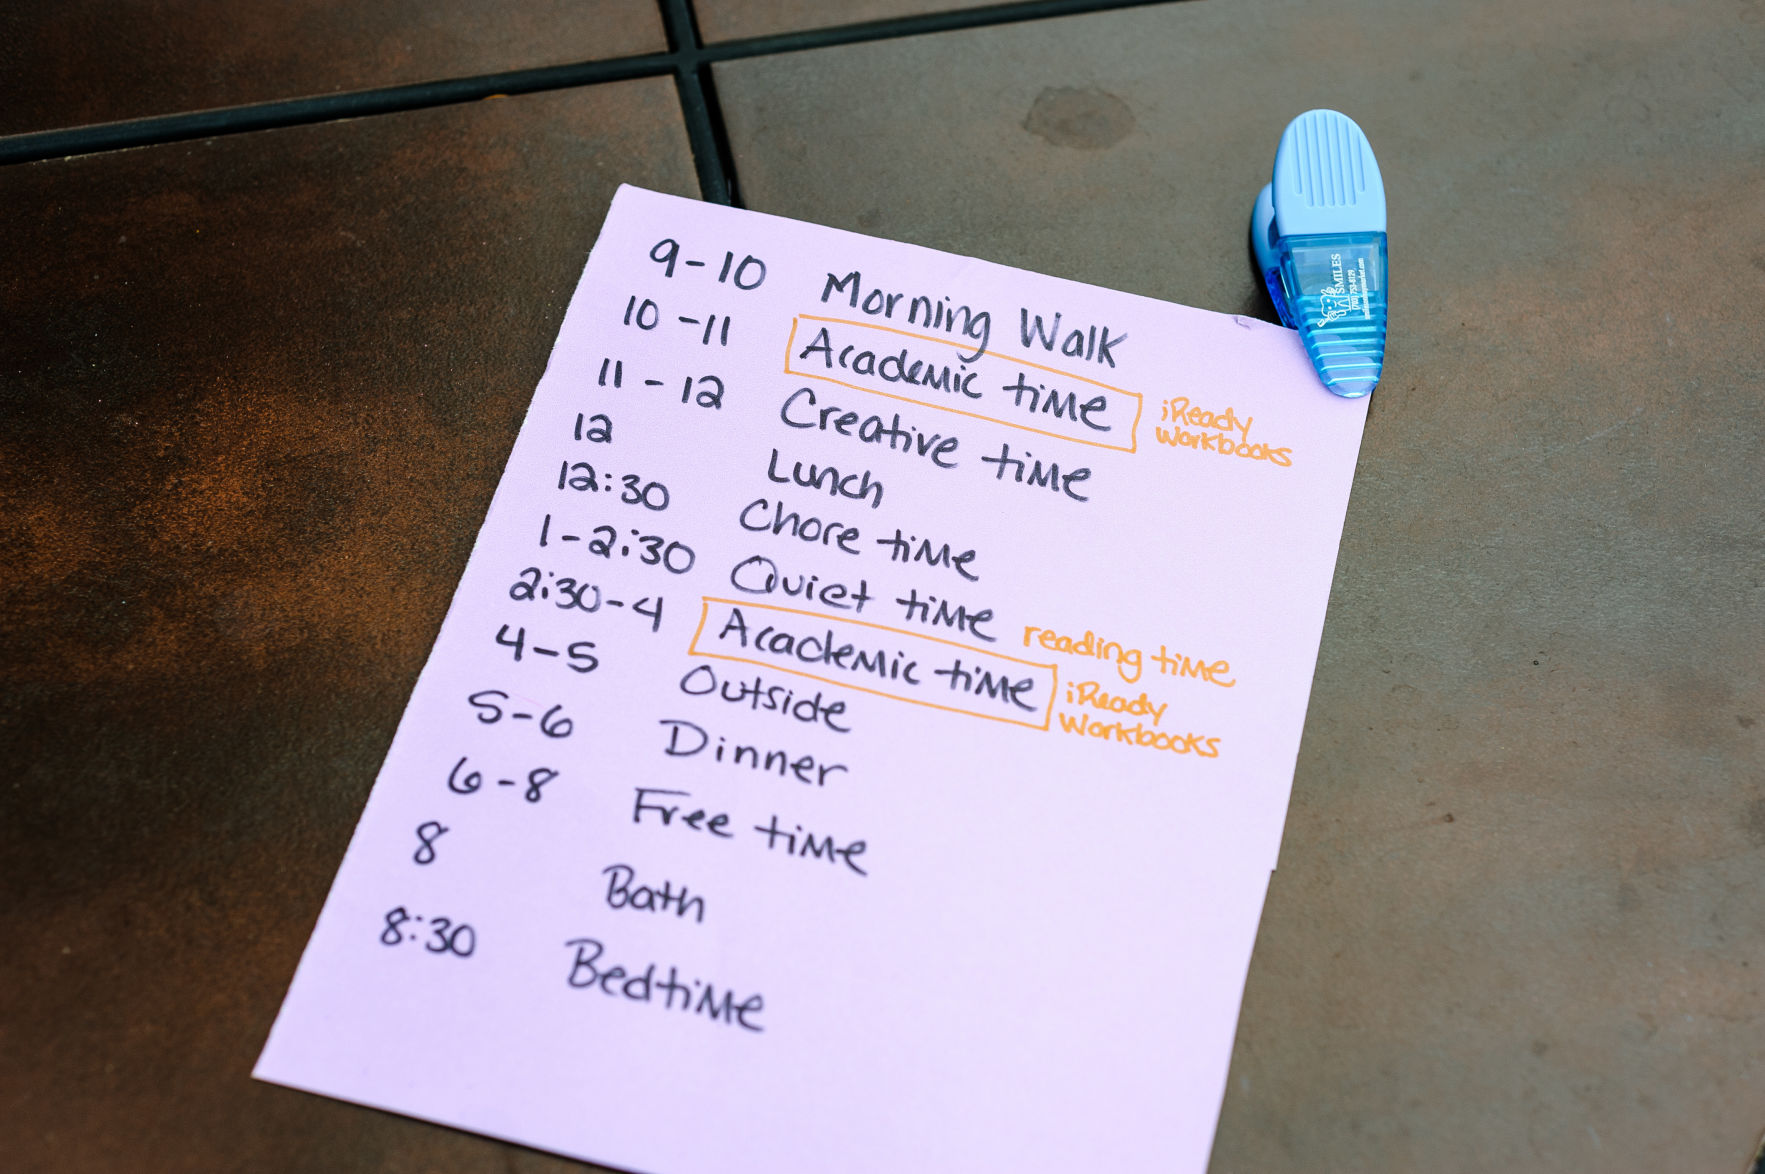 9-10 Morning Walk
10-11 Academic time iReady Workbooks
11-12 Creative time
12 Lunch
12:30 Chore time
1-2:30 Quiet time reading time
2:30-4 Academic time iReady Workbooks
4-5 Outside
5-6 Dinner
6-8 Free time
8 Bath
8:30 Bedtime
SMILES